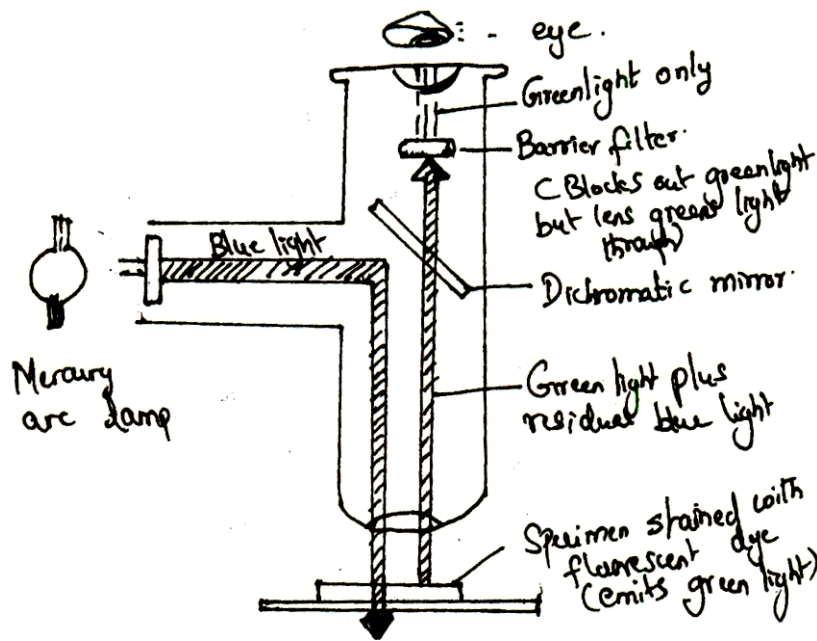 eye.
Greenlight only
Barrier filter.
C Blocks out greenlight
but lens greens light
through)
Blue light
Dichromatic mirror.
Mercury
arc lamp
Green light plus
residual blue light
Specimen stained with
fluorescent dye
(emits green light)